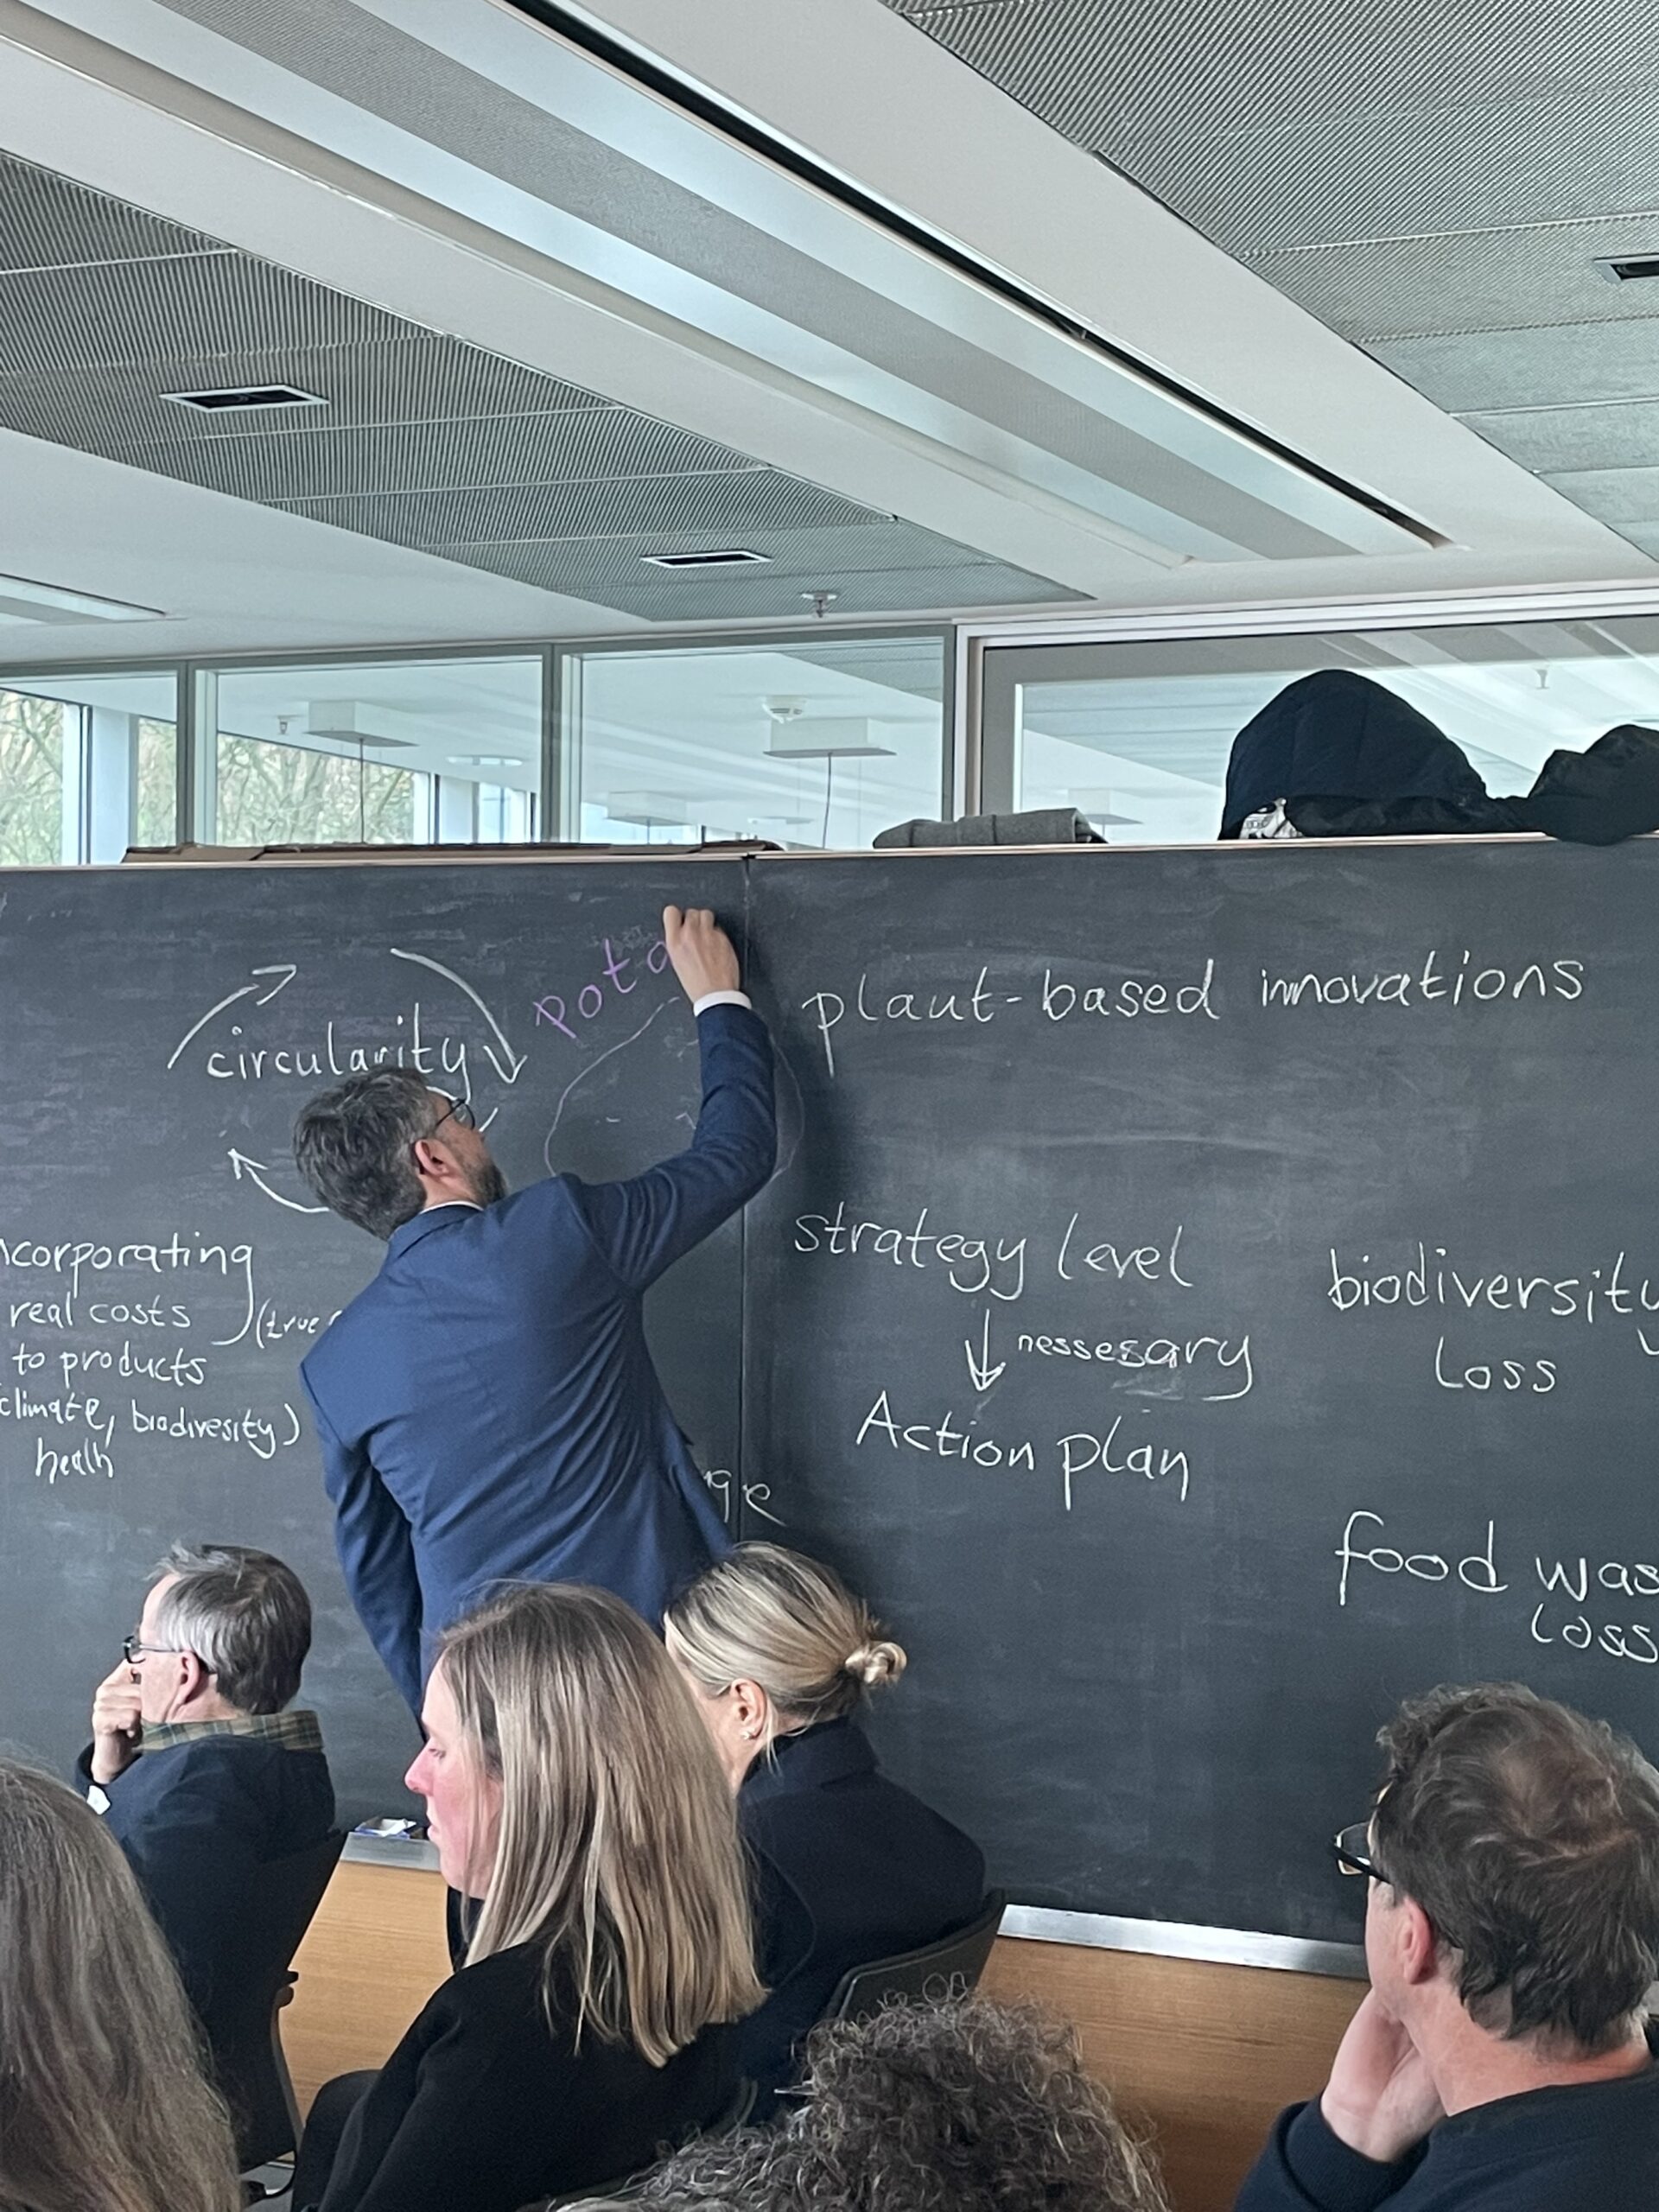 circularity
pota
ncorporating
real costs
(true
to products
climate, biodivesity)
health
ge
plant-based innovations
strategy level
nessesary
Action plan
biodiversity
loss
food was
loss